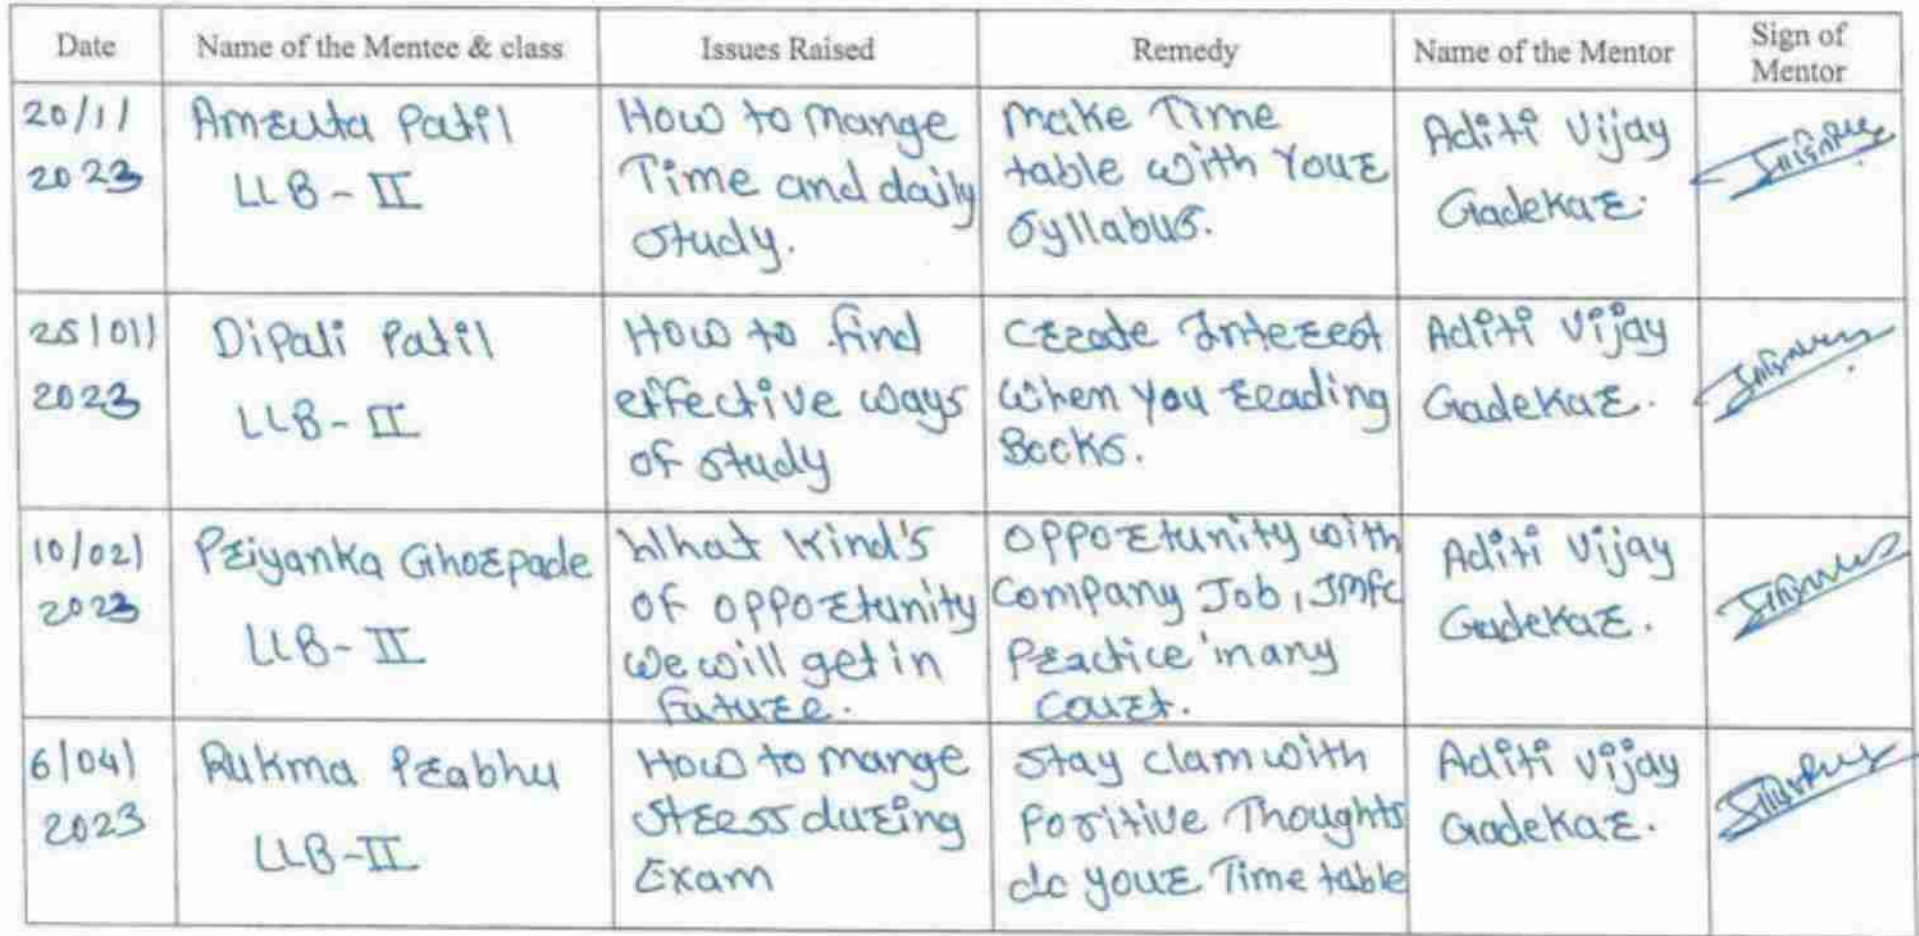 Date Name of the Mentee & class Issues Raised Remedy Name of the Mentor Sign of Mentor
20/1/ 2023
Amruta Patil
LLB - II
How to mange
Time and daily
study.
make Time
table with Your
syllabus.
Aditi Vijay
Gadekar.
25/01/ 2023
Dipali Patil
LLB - II
How to find
effective ways
of study
Creade Interest
When you reading
Books.
Aditi Vijay
Gadekar.
10/02/ 2023
Priyanka Ghorpade
LLB - II
What Kind's
of opportunity
we will get in
future.
opportunity with
Company Job, Jmfc
Practice in any
Court.
Aditi Vijay
Gadekar.
6/04/ 2023
Rukma Prabhu
LLB-II
How to mange
stress during
Exam
Stay clam with
Positive Thoughts
do your Time table
Aditi Vijay
Gadekar.